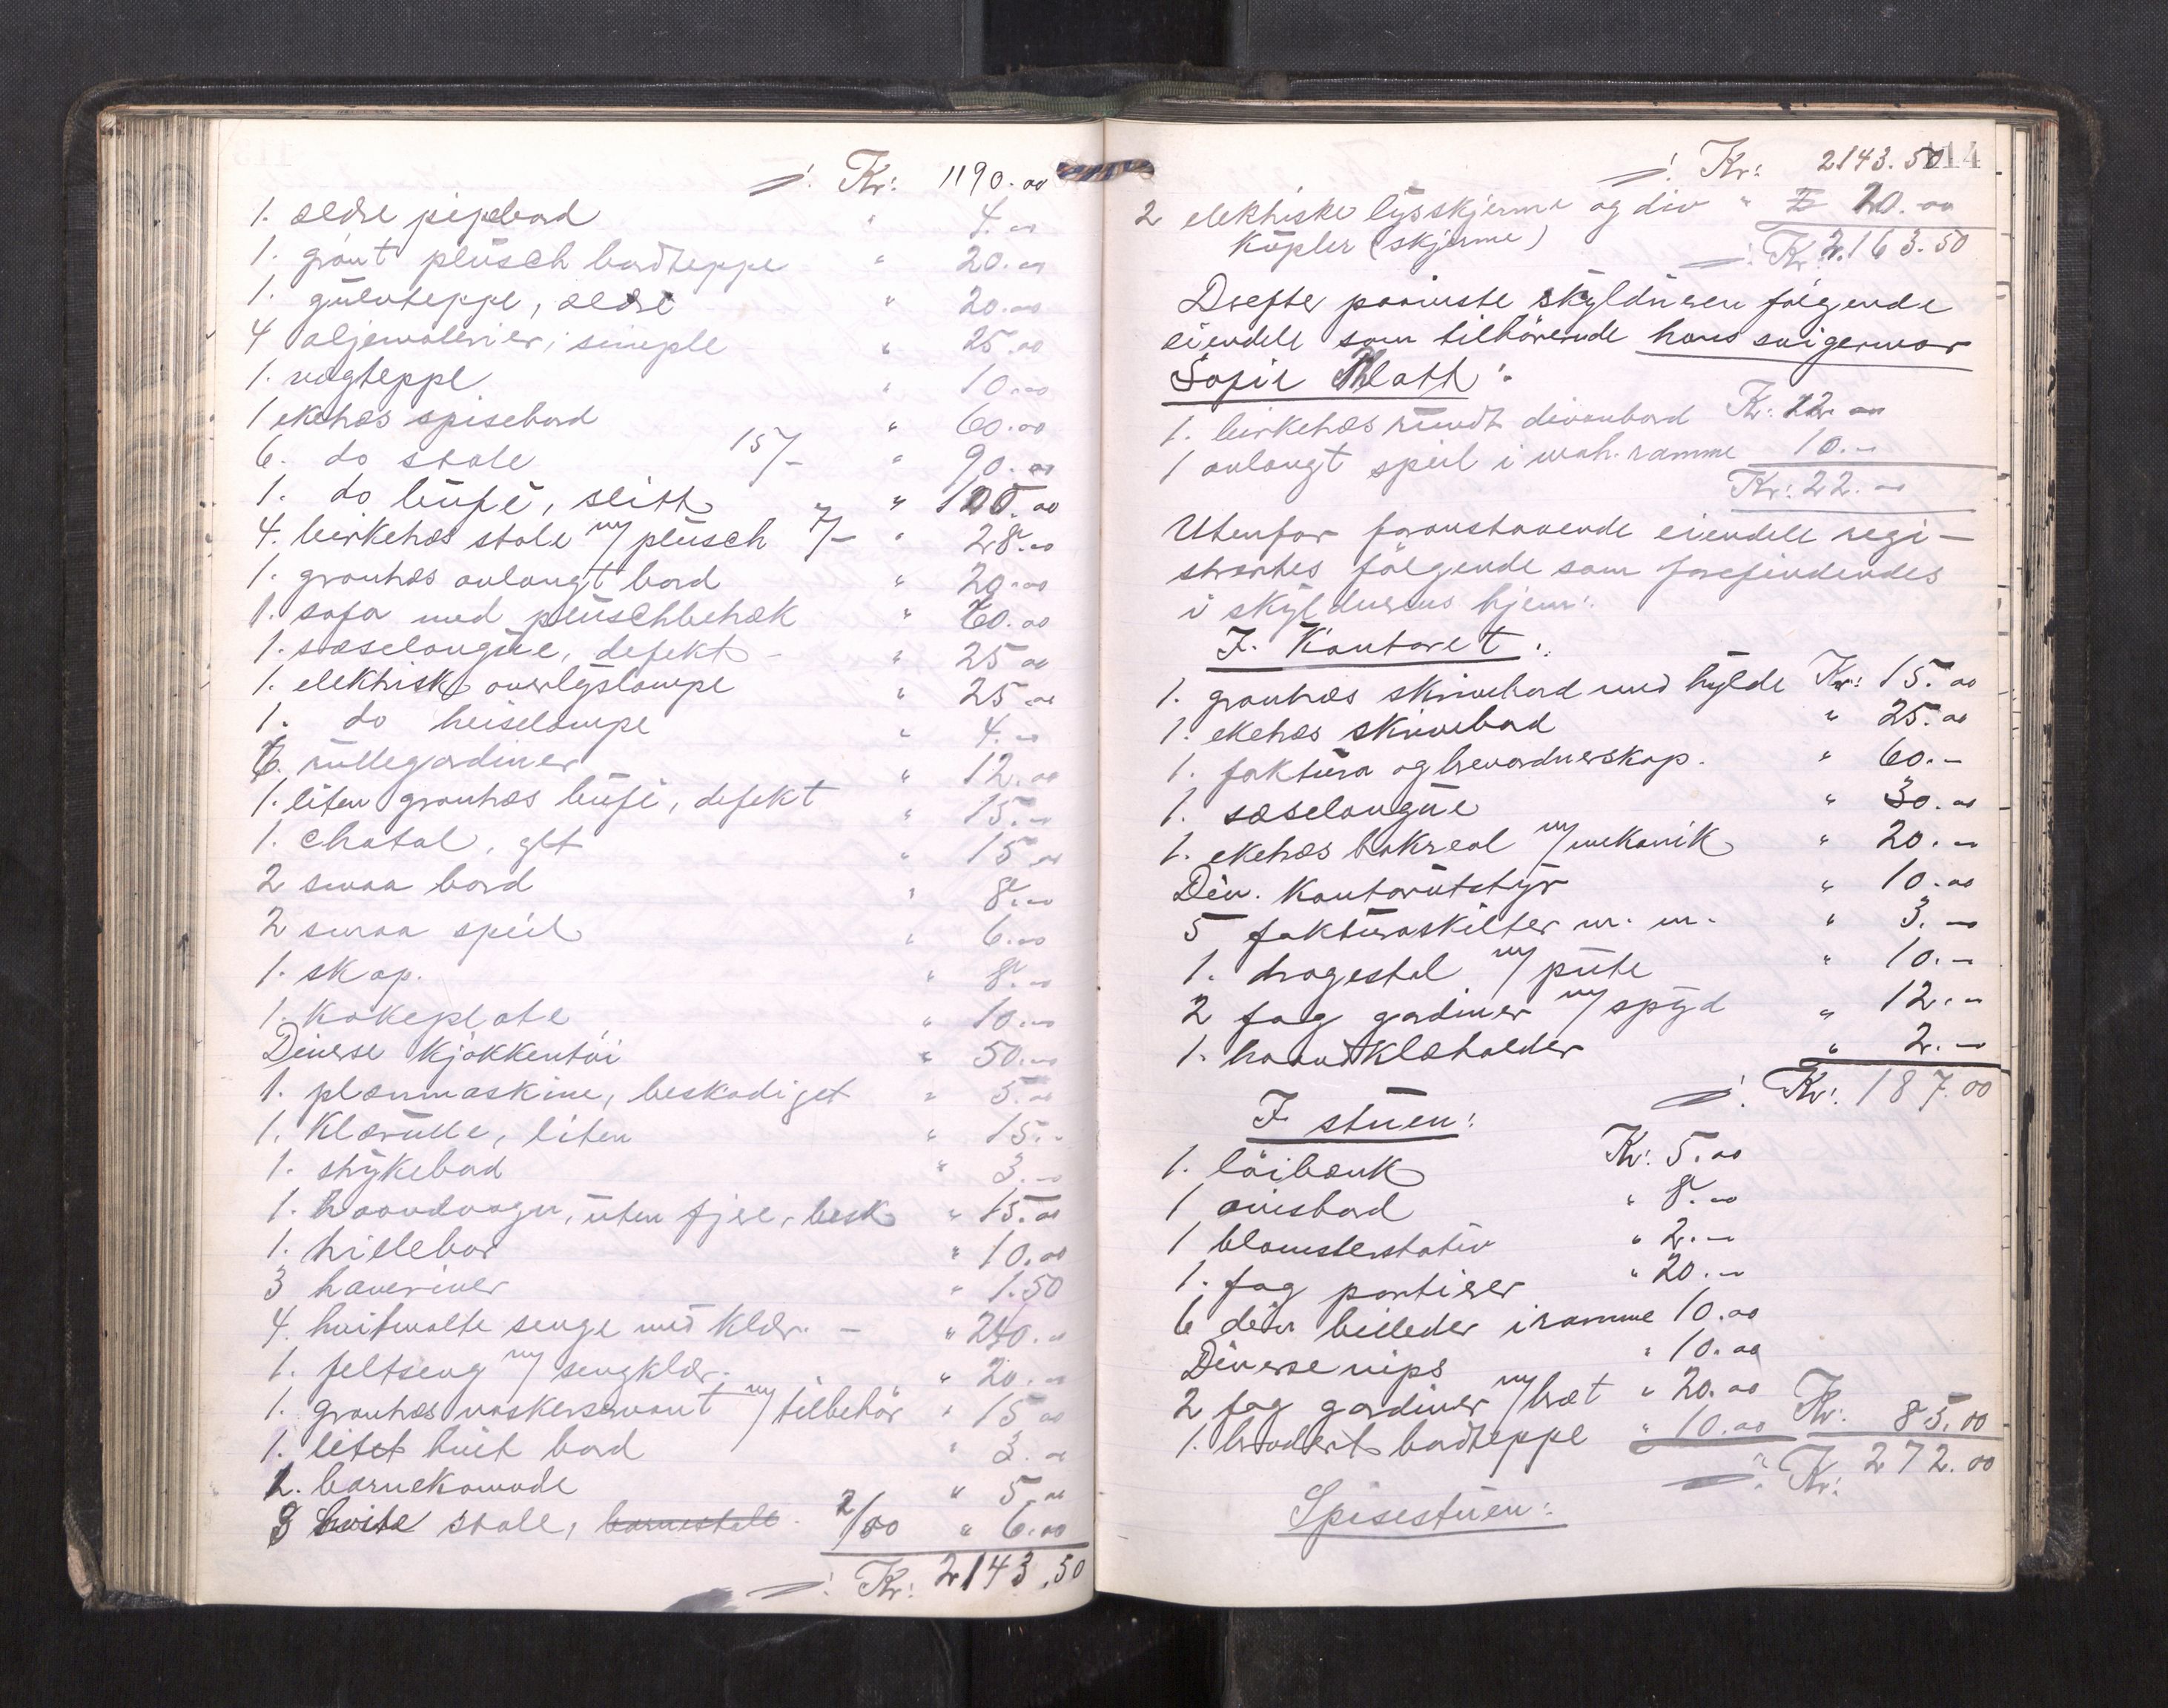 Kr: 1190.00
1. ældre pipebord " 4.00
1. grønt plüsch bordteppe " 20.00
1. gulvteppe, ældre " 20.00
4 oljemalerier, simple " 25.00
1. vægteppe " 10.00
1 eketræs spisebord " 60.00
6. do stole 15/- " 90.00
1. do büfé, slitt " 100.00
4. birketræs stole m/ plüsch 7/- " 28.00
1. grantræs avlangt bord " 20.00
1. sofa med plüschbetræk " 60.00
1. sæselongüe, defekt - " 25.00
1. elektrisk overlyslampe " 25.00
1. do heiselampe " 4.00
6. rüllegardiner " 12.00
1. liten grantræs büfé, defekt " 15.00
1. chatol, glt " 15.00
2 smaa bord " 8.00
2 smaa speil " 6.00
1. skap. " 8.00
1. kokeplate " 10.00
Diverse kjøkkentöi " 50.00
1. plænmaskine, beskadiget " 5.00
1. klærülle, liten " 15.-
1. strykebord " 3.00
1. haandvogn, üten fjæe, besk " 15.00
1. trillebør " 10.00
3 haveriver " 1.50
4. hvitmalte senge med klær. - " 240.00
1. feltseng m/ sengklær. " 20.00
1. grantræs vaskerservant m/ tilbehör " 15.00
1. litet hvit bord " 3.00
1. barnekomode " 5.00
3 hvite stole, barnestole. 2/00 " 6.00
Kr: 2143.50
114
Kr: 2143.50
2 elektriske lysskjerme og div " 20.00
küpler (skjerme)
Kr 2.163.50
Drefter paaviste skyldneren følgende
eiendele som tilhörende hans svigermor
Sofie Platt:
1. birketræs rundt divanbord Kr: 12.00
1 avlangt speil i mah. ramme 10.-
Kr: 22.00
Utenfor foranstaaende eiendele regi-
strertes fölgende som forefindendes
i skyldnerens hjem:
I. Kontoret:
1. grantræs skrivebord med hylde Kr: 15.00
1. eketræs skrivebord " 25.00
1. faktüra og brevordnerskap. " 60.-
1. sæselongüe " 30.00
1. eketræs bokreol m/ mekanik " 20.-
Div. kontorütstyr " 10.00
5 faktüraskilter m. m. " 3.-
1. dragestol m/ püte " 10.-
2 fag gardiner m/ spyd " 12.-
1. haandklæholder " 2.-
Kr: 187.00
I stüen:
1. löibænk Kr: 5.00
1 avisbord " 8.-
1 blomsterstativ " 2.-
1. fag portierer " 20.-
6 div billeder i ramme 10.00
Diverse nips " 10.00
2 fag gardiner m/ bræt " 20.00
1. brodert bordteppe " 10.00 Kr: 85.00
Kr: 272.00
Spisestüen: